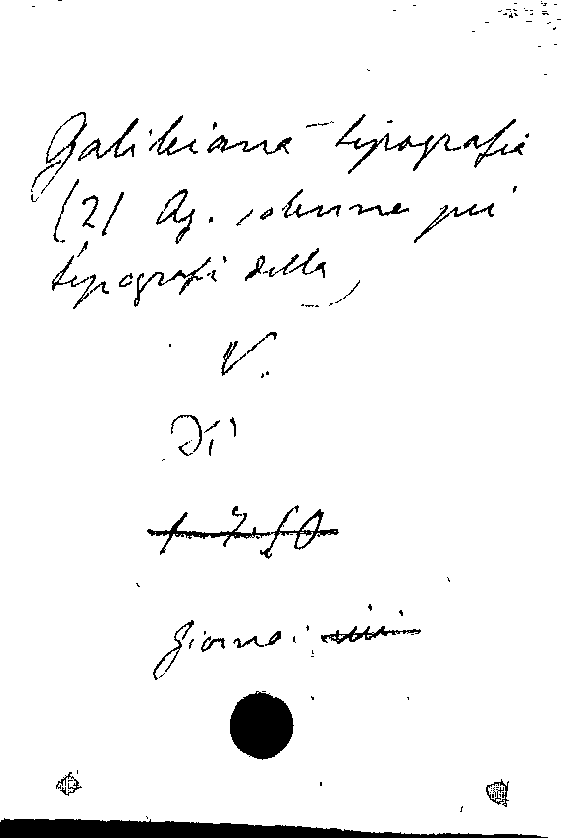 Galileiana - tipografia
(2) Ag. solenne pei
tipografi della
V.
Di
1750
Giorno: